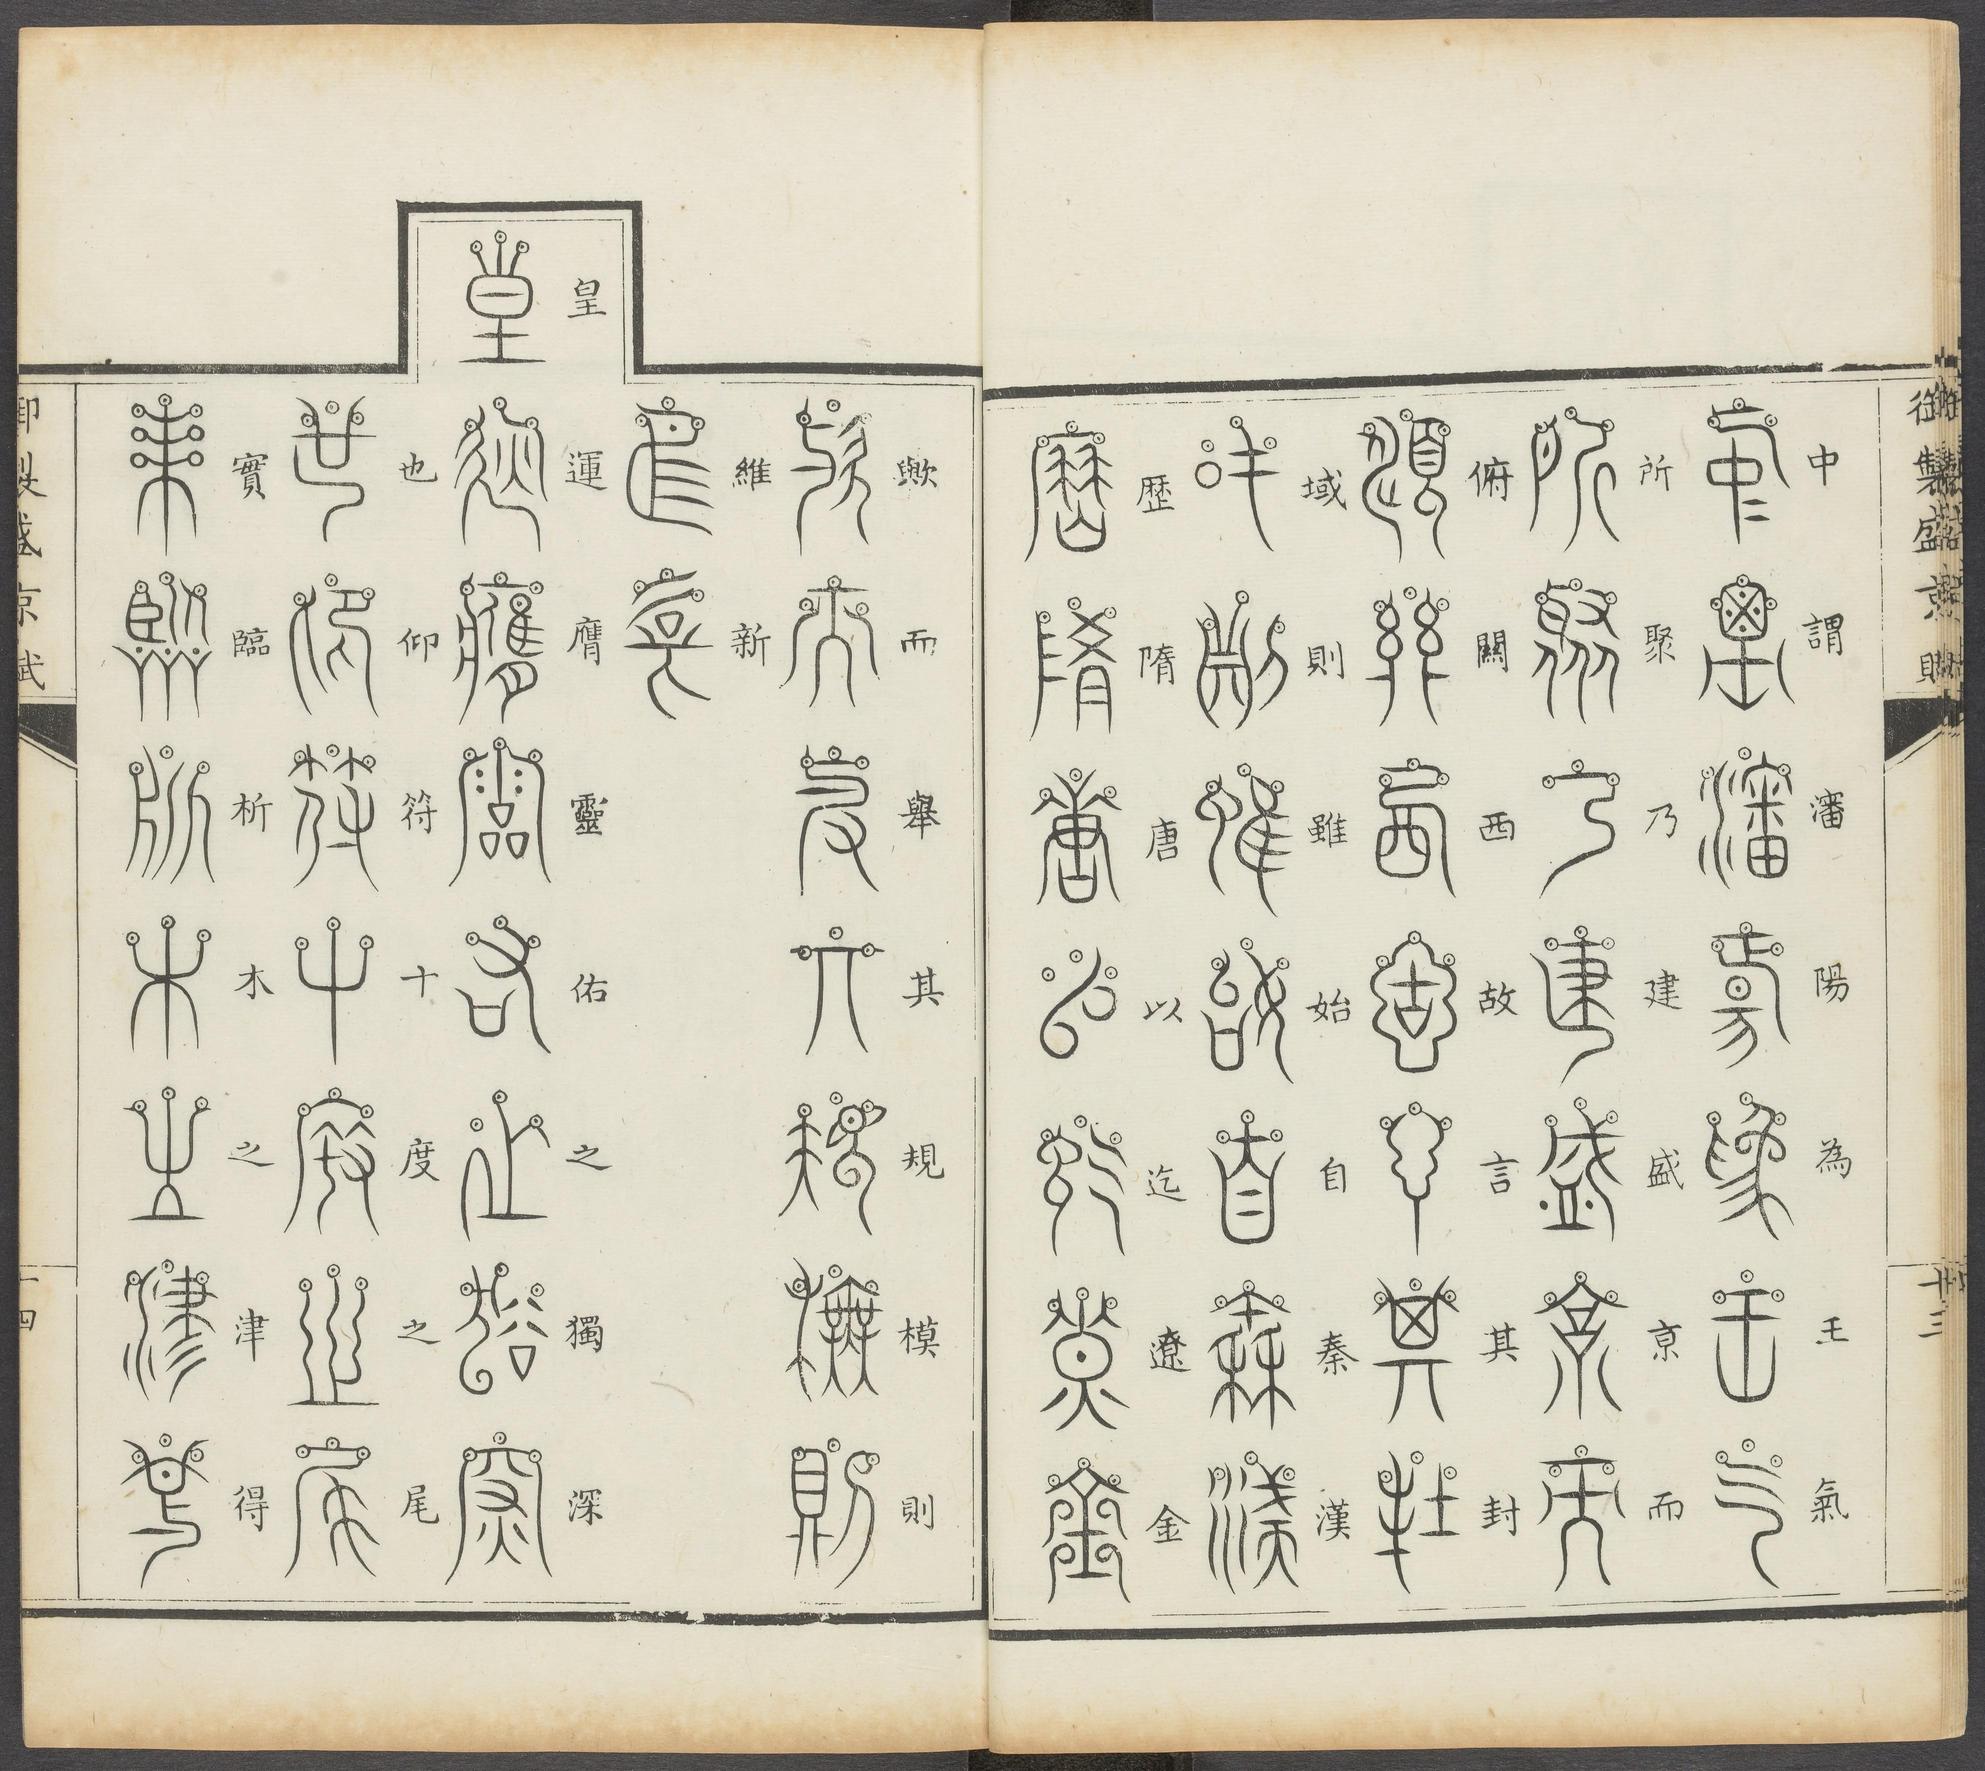 御製盛京賦
十三
中謂瀋陽為王氣
所聚乃建盛京而
俯關西故言其封
域則雖始自秦漢
歷隋唐以迄遼金
歟而舉其規模則
維新
皇運膺靈佑之獨深
也仰符十度之尾
實臨析木之津得
御製盛京賦
十四